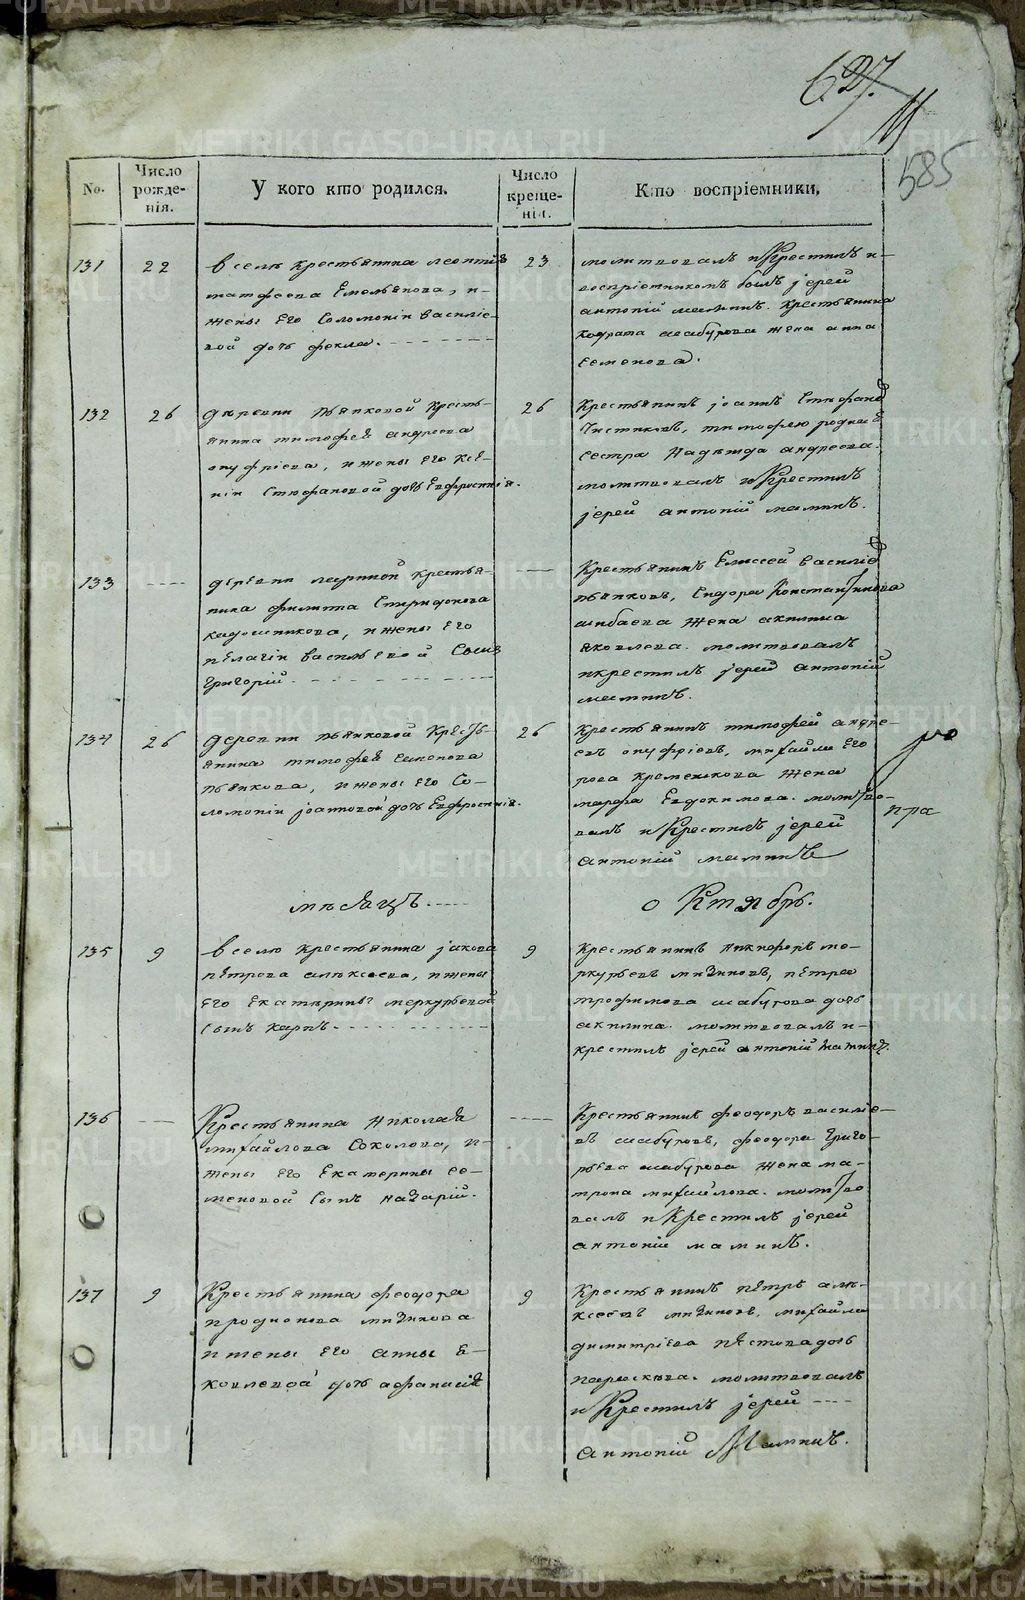 METRIKI.GASO-URAL.RU
627.
585
No.
Число рожде-нія.
У кого кто родился.
Число креще-нія.
Кто воспріемники.
131
22
в селе крестьянина леонтія
матфеева Емельянова, и
жены его Соломоніи василіе-
вой дочь фекла.
23
молитвовалъ и Крестилъ и
воспріемникомъ былъ іерей
антоній маминъ. крестьянина
шабурова жена анна
семенова.
132
26
деревни пьянковой Кресть-
янина тимофея андреева
онуфріева, и жены его ксе-
ніи Стефановой дочь Евфросинія.
26
Крестьянинъ іоаннъ Стефановъ
Чистяковъ, тимофею родная
сестра Надежда андреева.
молитвовалъ и Крестилъ
іерей антоній маминъ.
133
деревни крестья-
нина филиппа Спиридонова
калошникова, и жены его
пелагіи васильевой Сынъ
григорій.
Крестьянинъ Елисей василіевъ
пьянковъ, Сидора Константинова
шибаева жена акилина
яковлева. молитвовалъ
и крестилъ іерей антоній
маминъ.
134
26
деревни пьянковой Кресть-
янина тимофея симонова
пьянкова, и жены его Со-
ломоніи іоанновой дочь Евфросинія.
26
Крестьянинъ тимофей андре-
евъ онуфріевъ, михайла его
рова Кременкова жена
марфа Евдокимова. молитво-
валъ и Крестилъ іерей
антоній маминъ
месяцъ.
октябрь.
135
9
в селе крестьянина іакова
петрова алексеева, и жены
его екатерины меркурьевой
сынъ карпъ.
9
крестьянинъ никифоръ ме-
ркурьевъ мизиновъ, петра
трофимова шабурова дочь
акилина. молитвовалъ и
крестилъ іерей антоній маминъ.
136
Крестьянина Николая
михайлова Соколова, и
жены его Екатерины се-
меновой Сынъ назарій.
крестьянинъ феодоръ василіе-
въ шабуровъ, феодора григо-
рьева шабурова жена ма-
трона михайлова. молитво
валъ и Крестилъ іерей
антоній маминъ.
137
9
Крестьянина феодора
продионова мизинова
и жены его анны я-
ковлевой дочь афанасія
9
Крестьянинъ петръ але-
ксеевъ мизиновъ, михайла
димитріева пестова дочь
параскева. молитвовалъ
и Крестилъ іерей
антоній Маминъ.